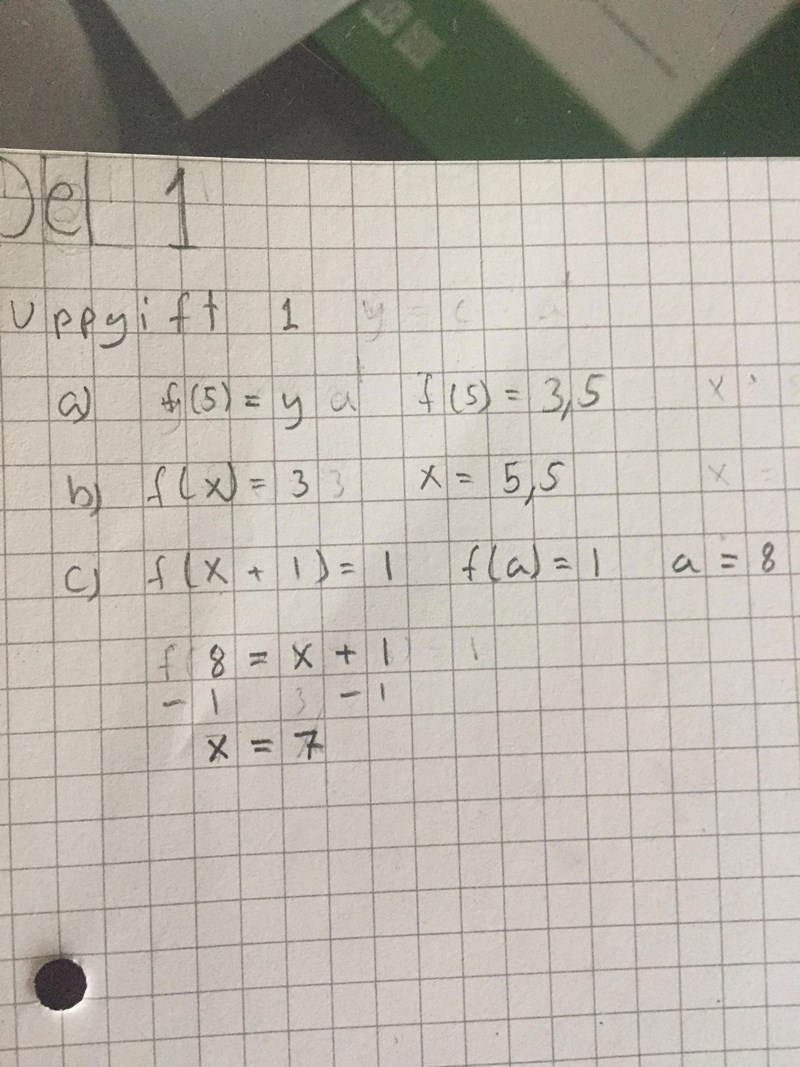 Del 1
Uppgift 1
a) f(5) = y f(5) = 3,5
b) f(x) = 3 x = 5,5
c) f(x + 1) = 1 f(a) = 1 a = 8
8 = x + 1
-1 -1
x = 7